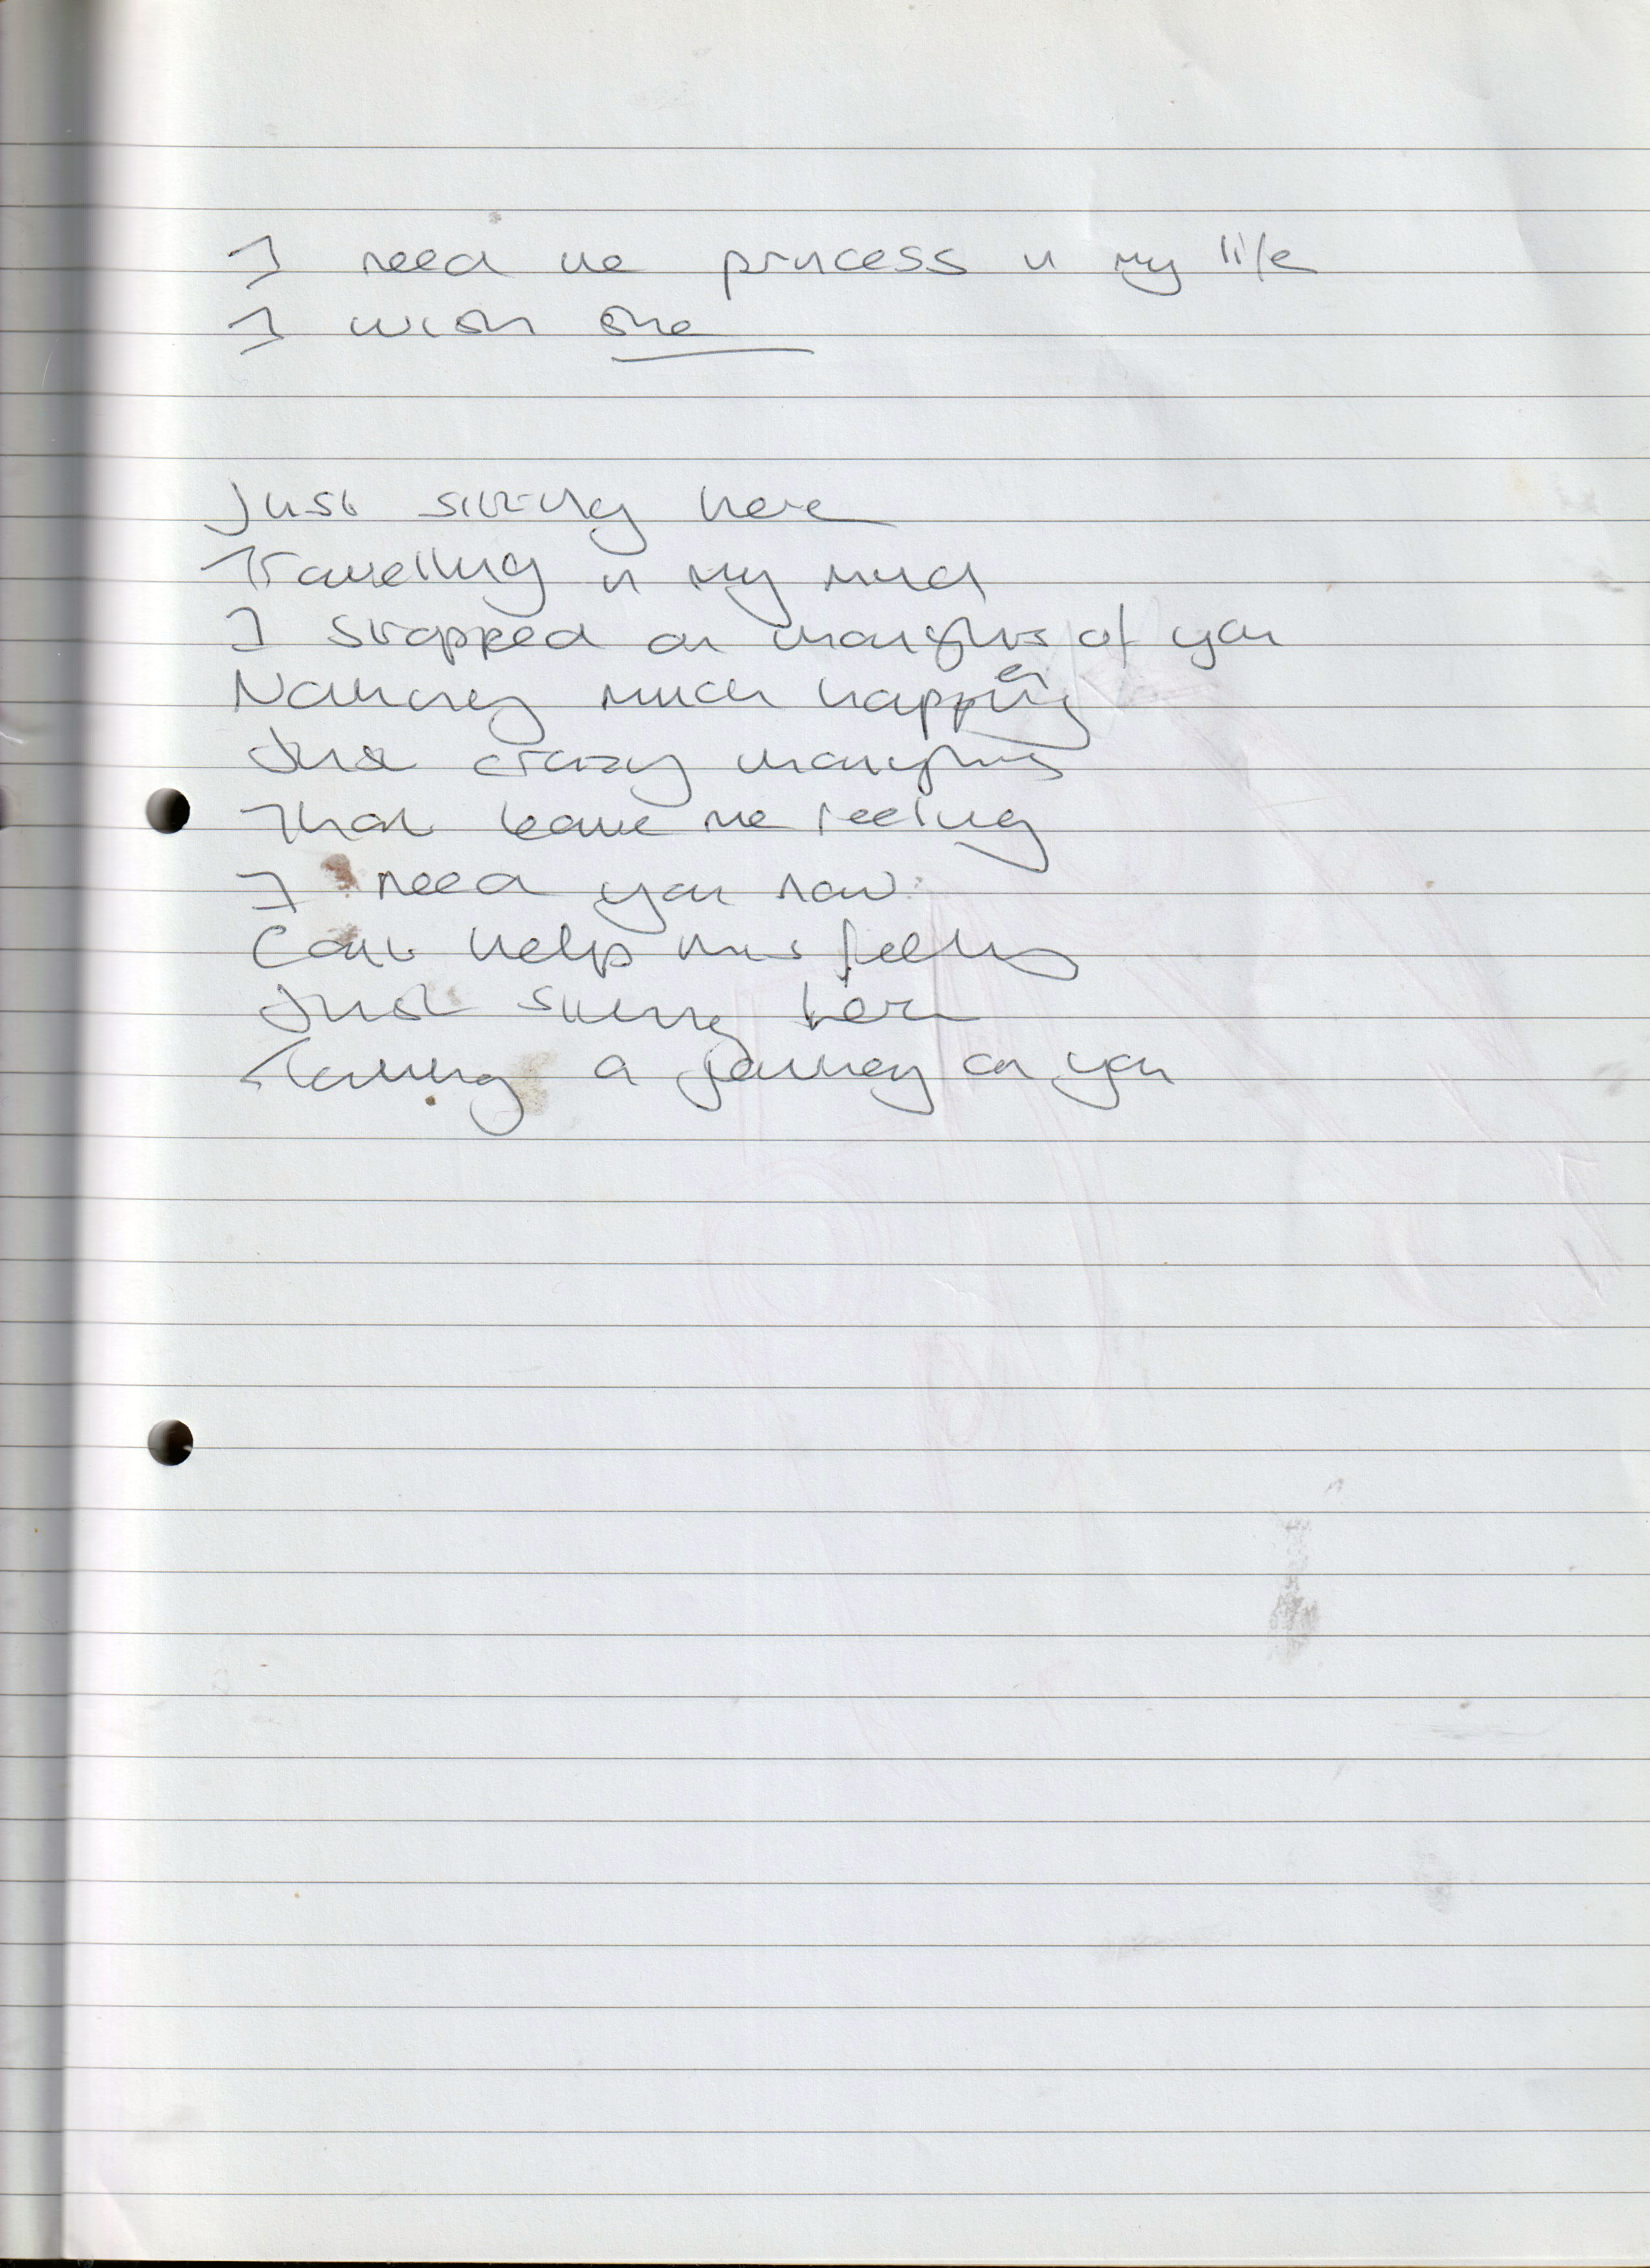 I need the princess in my life
I wish she
Just sitting here
Travelling in my mind
I stopped on thoughts of you
Nothing much happening
Just crazy thoughts
That leave me feeling
I need you now
Can't help this feeling
Just sitting here
Taking a journey on you